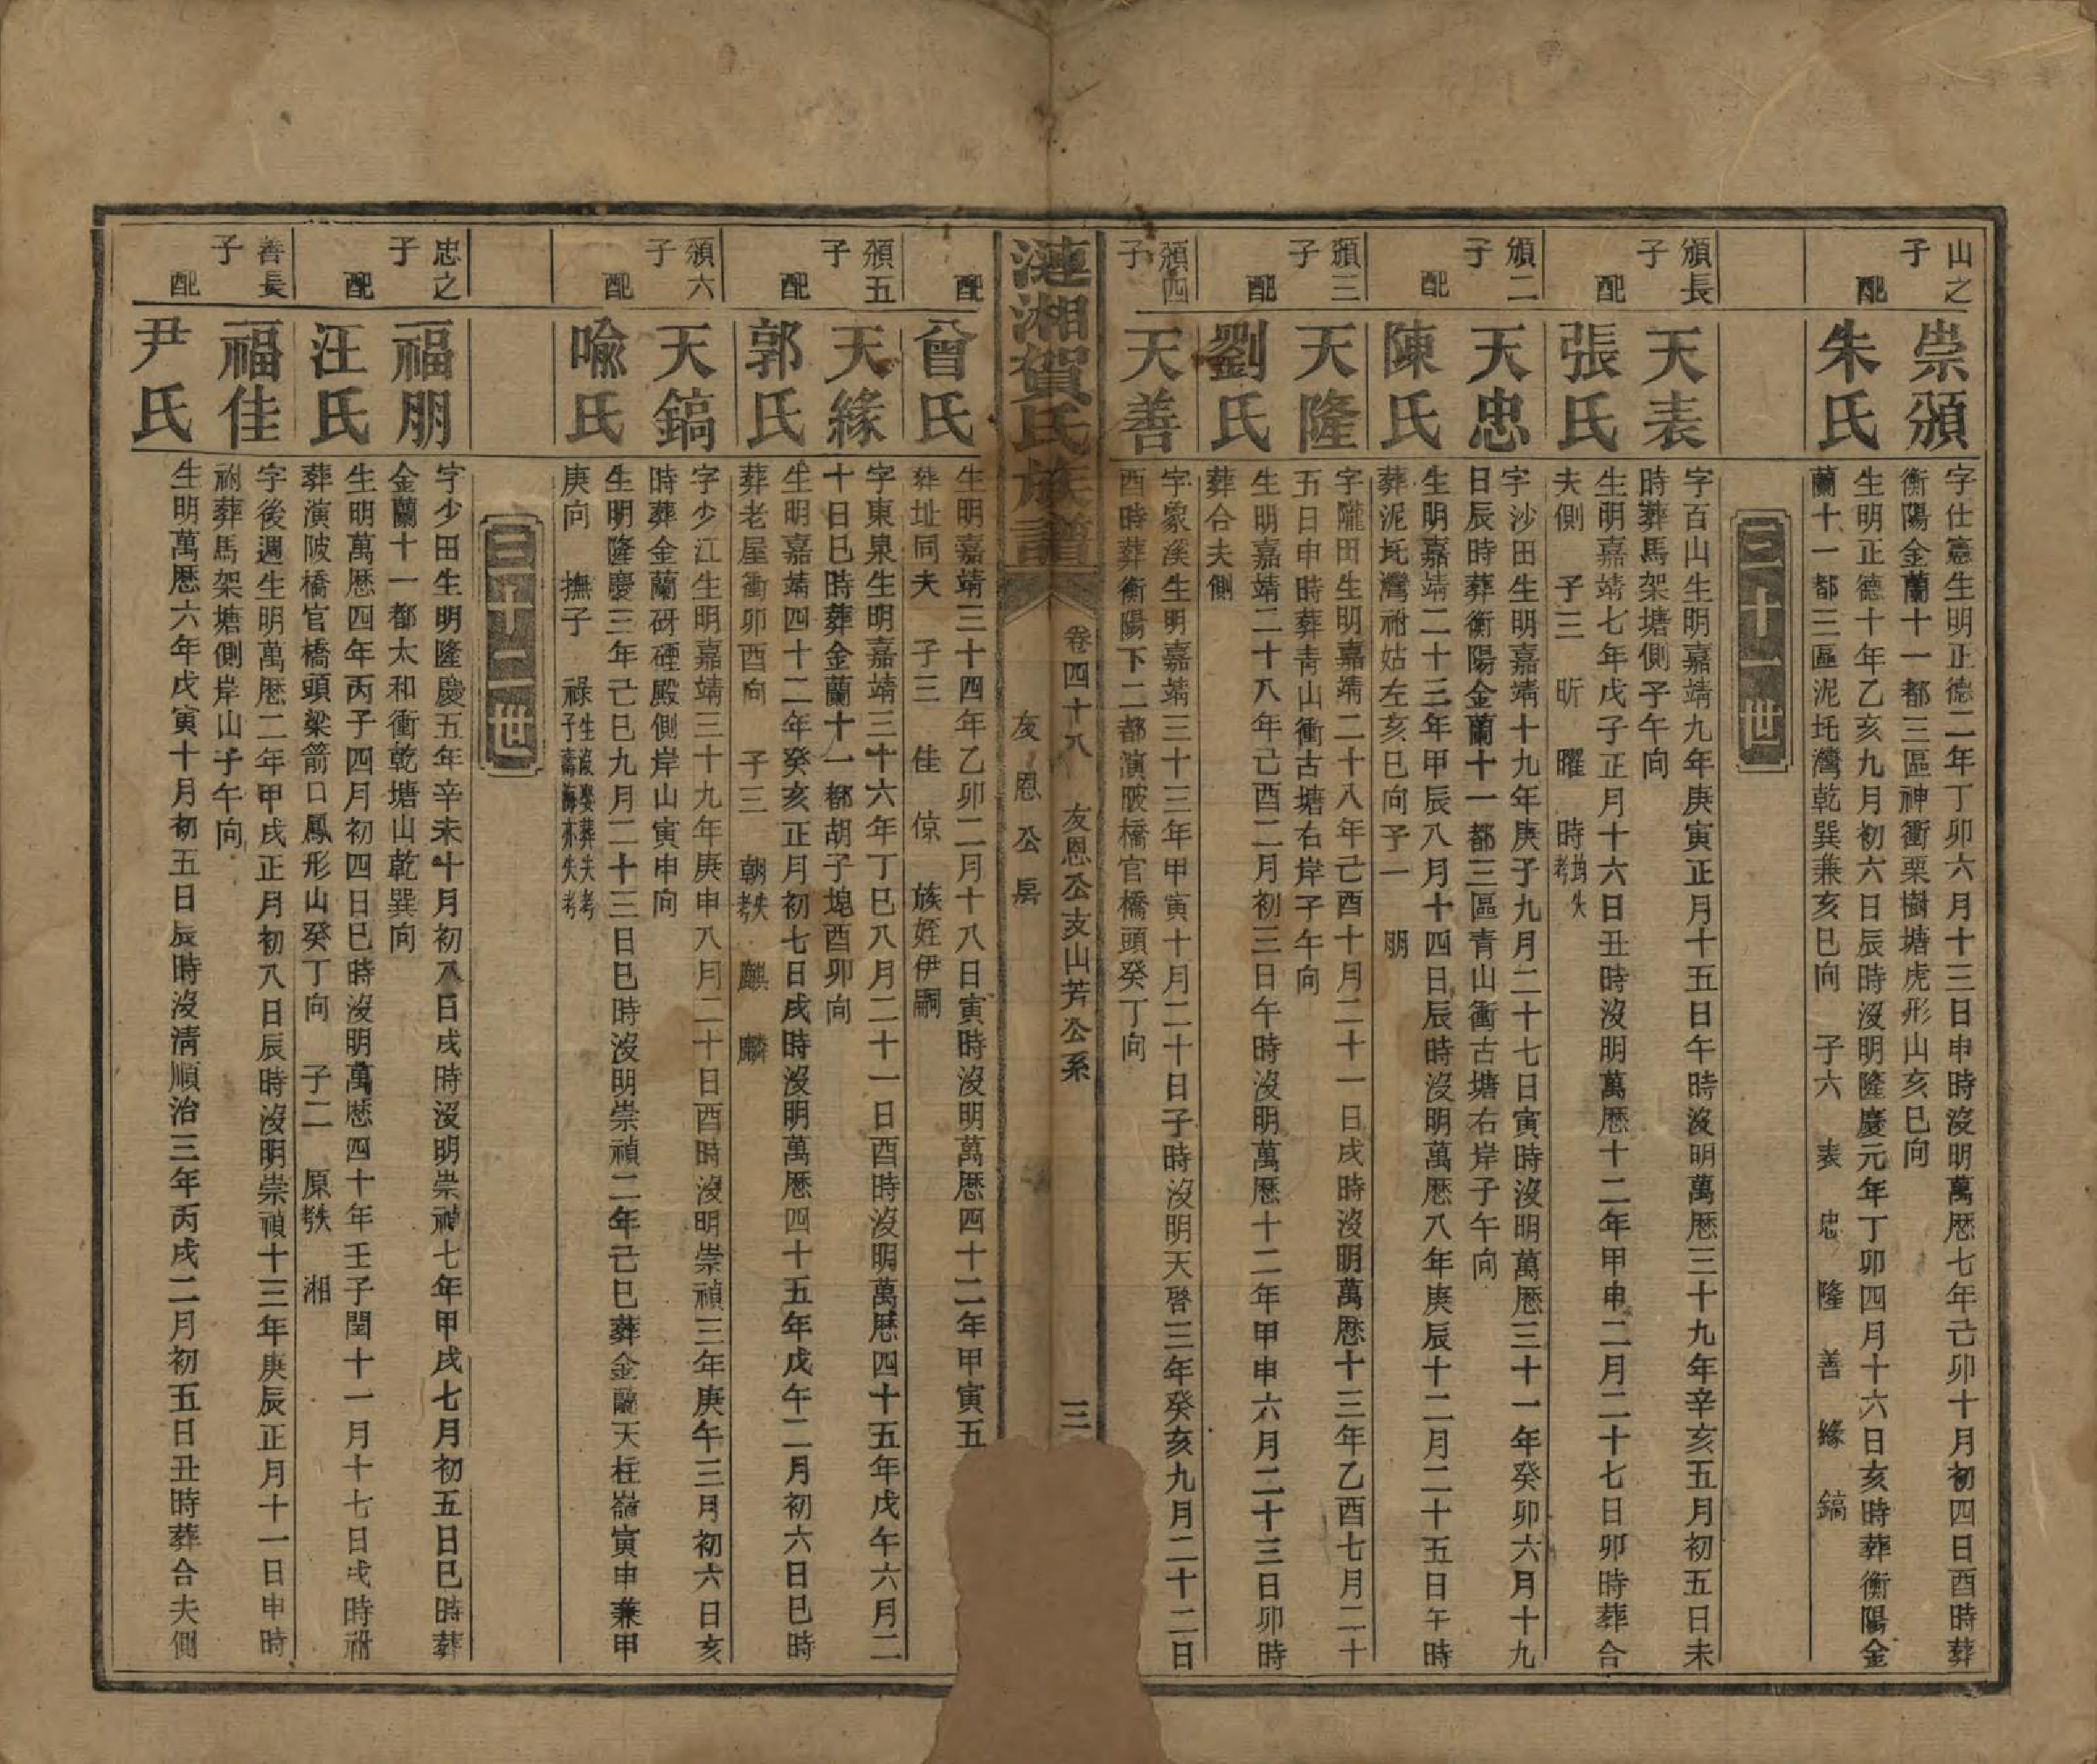 山之
子
崇頒
字仕憲生明正德二年丁卯六月十三日申時沒明萬歷七年己卯十月初四日酉時葬
衡陽金蘭十一都三區神衝栗樹塘虎形山亥巳向
配
朱氏
生明正德十年乙亥九月初六日辰時沒明隆慶元年丁卯四月十六日亥時葬衡陽金
蘭十一都三區泥圫灣乾巽兼亥巳向 子六 表 忠 隆 善 緣 鎬
三十一世
頒長
子
天表
字百山生明嘉靖九年庚寅正月十五日午時沒明萬歷三十九年辛亥五月初五日未
時葬馬架塘側子午向
配
張氏
生明嘉靖七年戊子正月十六日丑時沒明萬歷十二年甲申二月二十七日卯時葬合
夫側 子三 昕 曜 時均失考
頒二
子
天忠
字沙田生明嘉靖十九年庚子九月二十七日寅時沒明萬歷三十一年癸卯六月十九
日辰時葬衡陽金蘭十一都三區青山衝古塘右岸子午向
配
陳氏
生明嘉靖二十三年甲辰八月十四日辰時沒明萬歷八年庚辰十二月二十五日午時
葬泥圫灣祔姑左亥巳向子一 朋
頒三
子
天隆
字隴田生明嘉靖二十八年己酉十月二十一日戌時沒明萬歷十三年乙酉七月二十
五日申時葬青山衝古塘右岸子午向
配
劉氏
生明嘉靖二十八年己酉二月初三日午時沒明萬歷十二年甲申六月二十三日卯時
葬合夫側
頒四
子
天善
字象溪生明嘉靖三十三年甲寅十月二十日子時沒明天啓三年癸亥九月二十二日
酉時葬衡陽下二都演陂橋官橋頭癸丁向
漣湘賀氏族譜
卷四十八 友恩公支山芳公系
友恩公房
三
配
曾氏
生明嘉靖三十四年乙卯二月十八日寅時沒明萬歷四十二年甲寅五
葬址同夫 子三 佳 倞 族姪伊嗣
頒五
子
天緣
字東泉生明嘉靖三十六年丁巳八月二十一日酉時沒明萬歷四十五年戊午六月二
十日巳時葬金蘭十一都胡子塊酉卯向
配
郭氏
生明嘉靖四十二年癸亥正月初七日戌時沒明萬歷四十五年戊午二月初六日巳時
葬老屋衝卯酉向 子三 朝失考 麒 麟
頒六
子
天鎬
字少江生明嘉靖三十九年庚申八月二十日酉時沒明崇禎三年庚午三月初六日亥
時葬金蘭研硾殿側岸山寅申向
配
喩氏
生明隆慶三年己巳九月二十三日巳時沒明崇禎二年己巳葬金蘭天柱嶺寅申兼甲
庚向 撫子 祿生沒娶葬失考子 亦失考
三十二世
忠之
子
福朋
字少田生明隆慶五年辛未十月初八日戌時沒明崇禎七年甲戌七月初五日巳時葬
金蘭十一都太和衝乾塘山乾巽向
配
汪氏
生明萬歷四年丙子四月初四日巳時沒明萬歷四十年壬子閏十一月十七日戌時祔
葬演陂橋官橋頭梁箭口鳳形山癸丁向 子二 原失考 湘
善長
子
福佳
字後週生明萬歷二年甲戌正月初八日辰時沒明崇禎十三年庚辰正月十一日申時
祔葬馬架塘側岸山子午向
配
尹氏
生明萬歷六年戊寅十月初五日辰時沒清順治三年丙戌二月初五日丑時葬合夫側